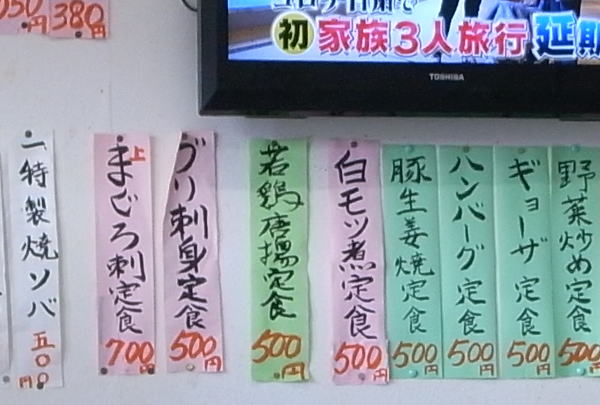 350円
380円
初 家族3人旅行 延期
TOSHIBA
一、特製焼ソバ 五〇〇円
上まぐろ刺定食 700円
ブリ刺身定食 500円
若鶏唐揚定食 500円
白モツ煮定食 500円
豚生姜焼定食 500円
ハンバーグ定食 500円
ギョーザ定食 500円
野菜炒め定食 500